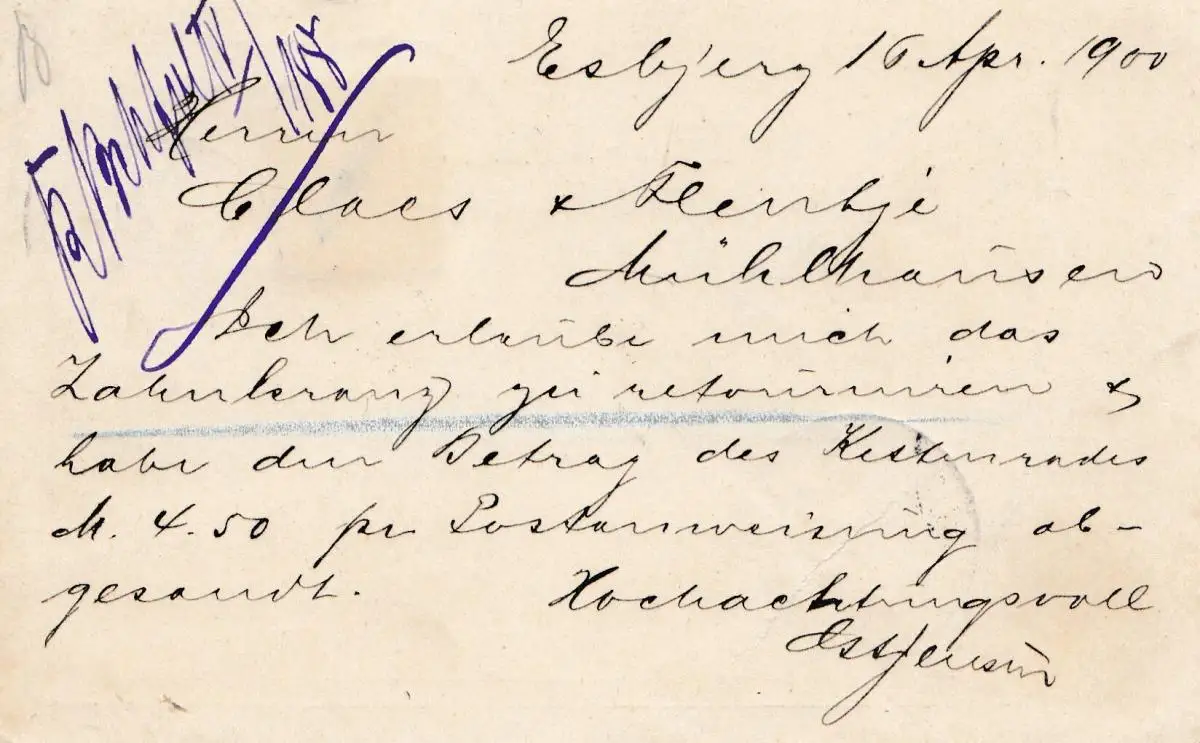 Esbjerg 16 Apr. 1900
Herren
Claes & Flentje
Mühlhausen
Ich erlaube mich das
Zahnkranz zu retourniren &
habe den Betrag des Kettenrades
M. 4.50 pr Postanweisung ab-
gesandt. Hochachtungsvoll